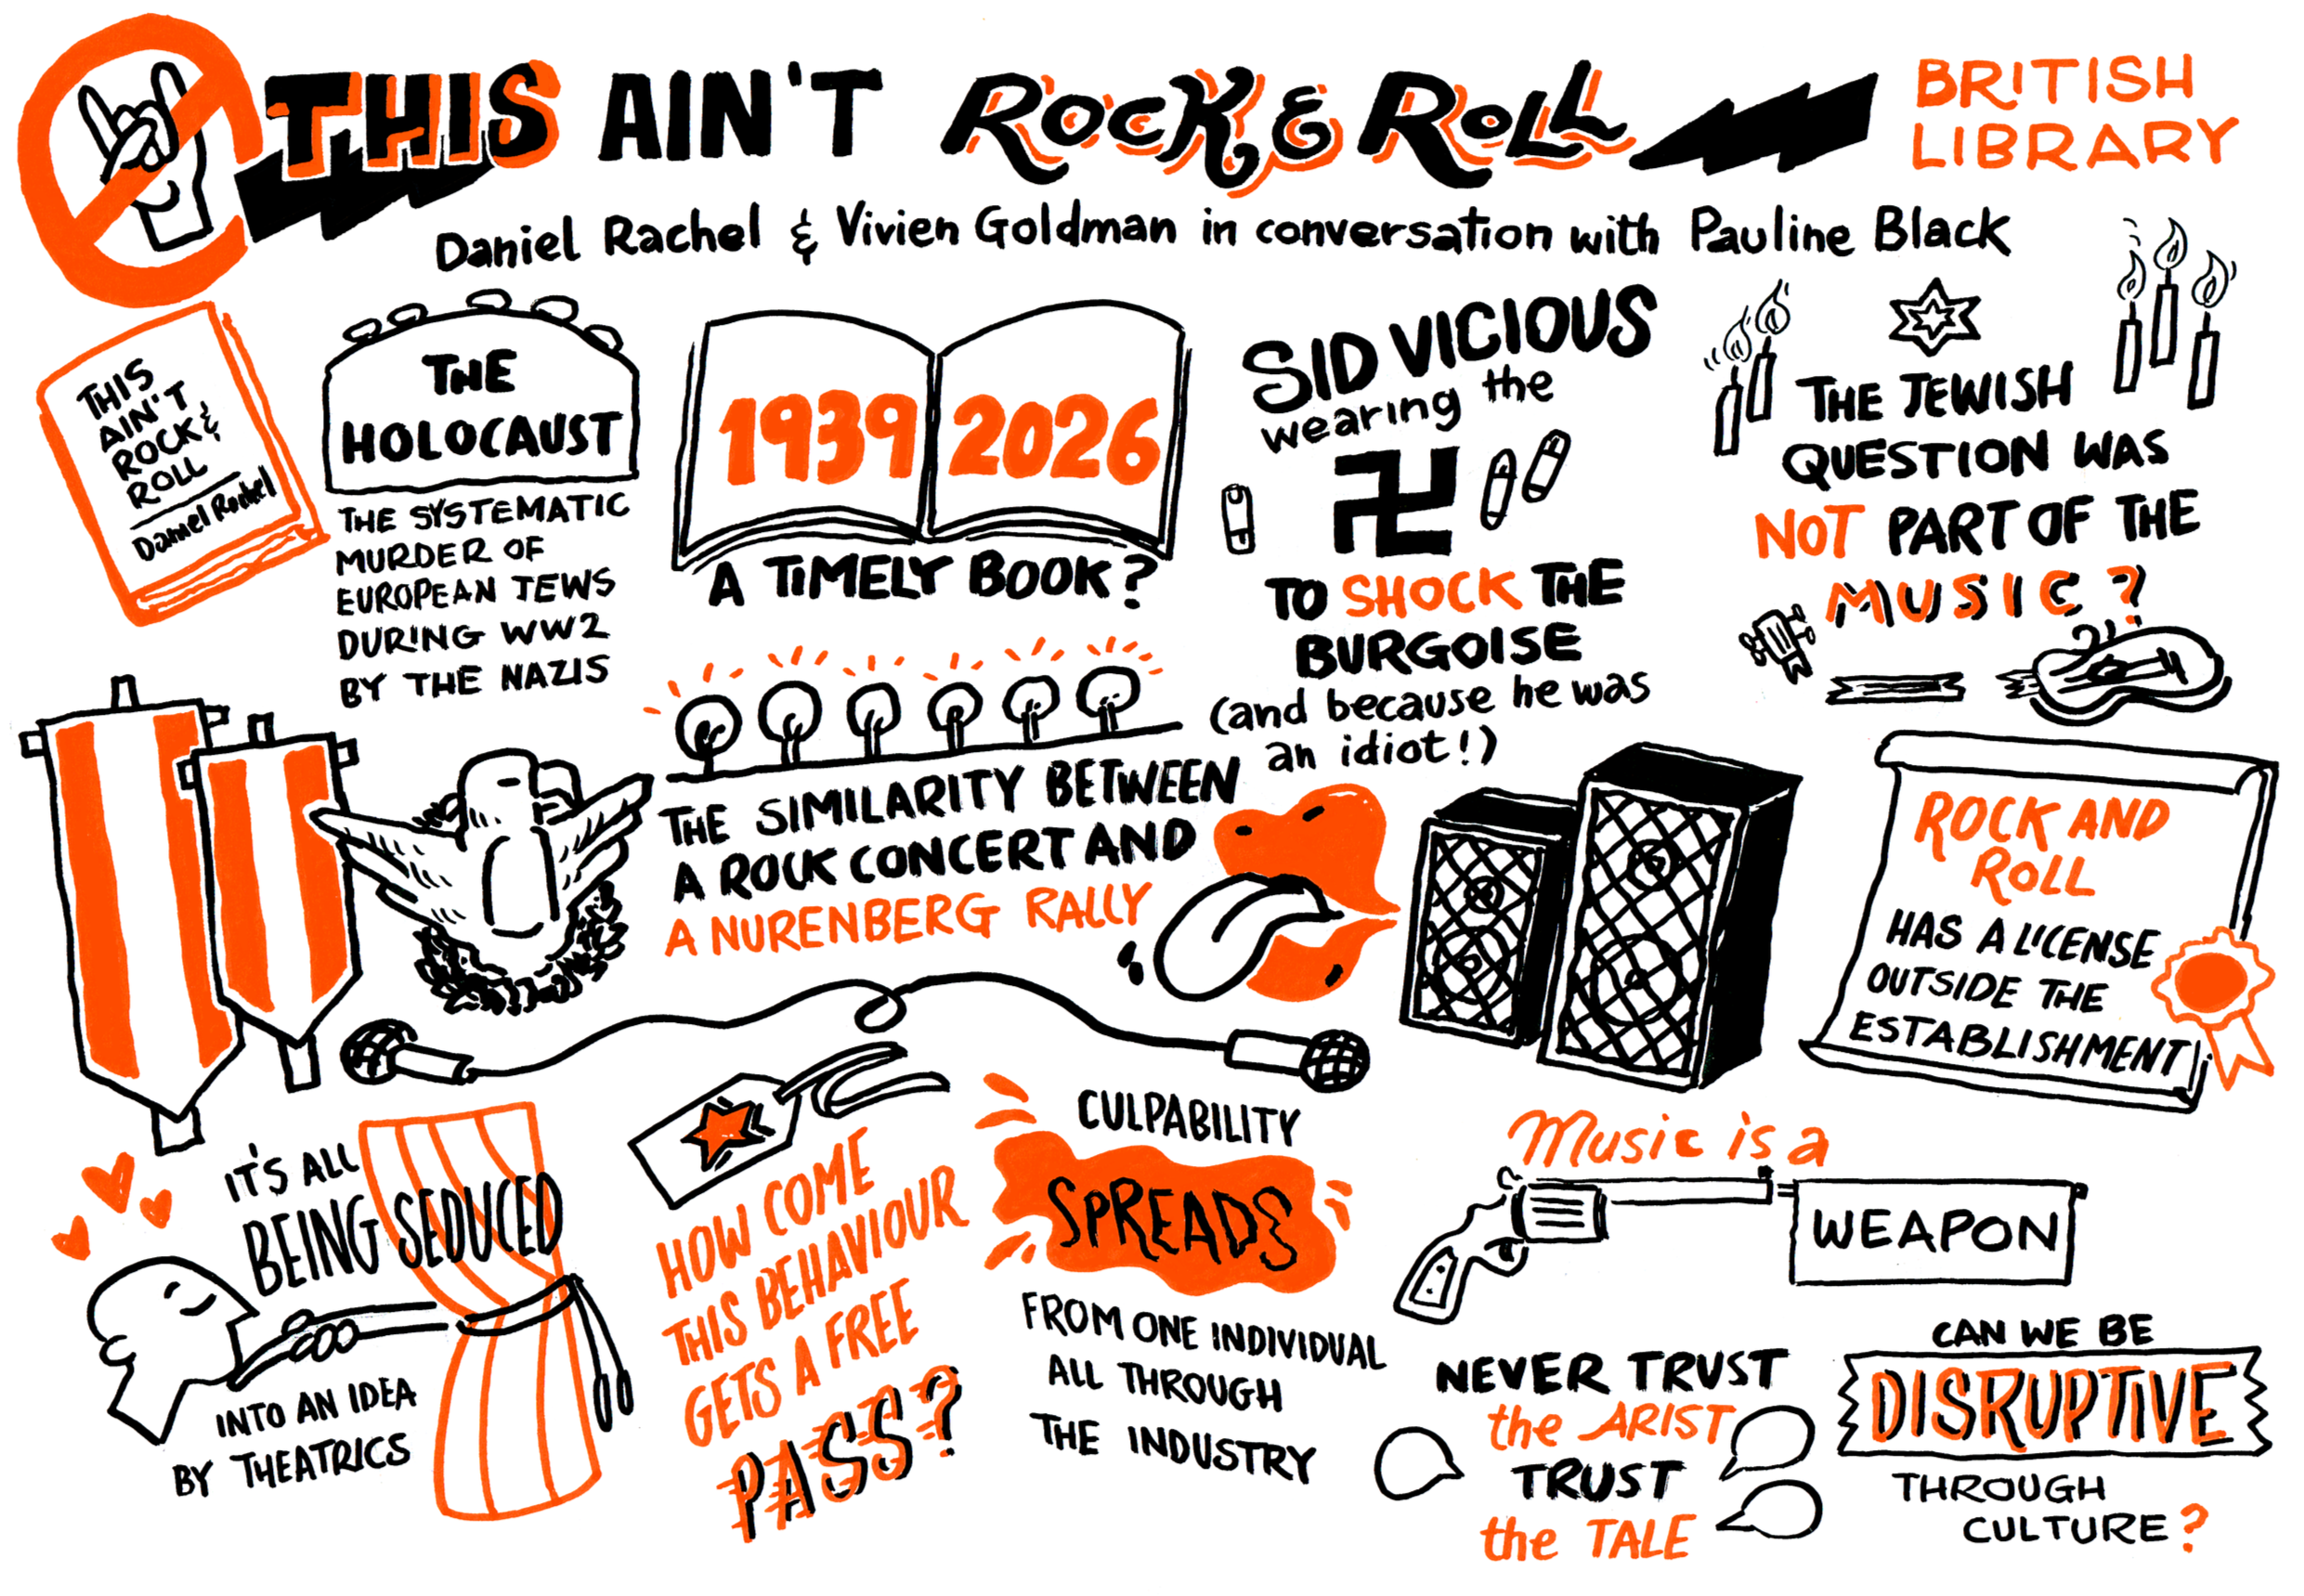 THIS AIN'T ROCK & ROLL
BRITISH
LIBRARY
Daniel Rachel & Vivien Goldman in conversation with Pauline Black
THIS
AIN'T
ROCK &
ROLL
Daniel Rachel
THE
HOLOCAUST
THE SYSTEMATIC
MURDER OF
EUROPEAN JEWS
DURING WW2
BY THE NAZIS
1939 2026
A TIMELY BOOK?
SID VICIOUS
wearing the
TO SHOCK THE
BURGOISE
(and because he was
an idiot!)
THE JEWISH
QUESTION WAS
NOT PART OF THE
MUSIC?
THE SIMILARITY BETWEEN
A ROCK CONCERT AND
A NURENBERG RALLY
ROCK AND
ROLL
HAS A LICENSE
OUTSIDE THE
ESTABLISHMENT
IT'S ALL
BEING SEDUCED
INTO AN IDEA
BY THEATRICS
HOW COME
THIS BEHAVIOUR
GETS A FREE
PASS?
CULPABILITY
SPREADS
FROM ONE INDIVIDUAL
ALL THROUGH
THE INDUSTRY
Music is a
WEAPON
NEVER TRUST
the ARIST
TRUST
the TALE
CAN WE BE
DISRUPTIVE
THROUGH
CULTURE?